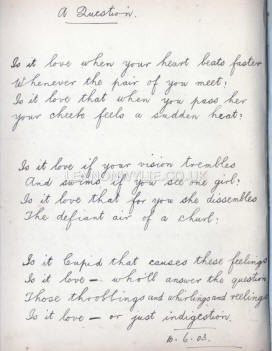 A Question.
Is it love when your heart beats faster
Whenever the pair of you meet?
Is it love that when you pass her
your cheek feels a sudden heat?
Is it love if your vision trembles
And swims if you see one girl?
Is it love that for you she dissembles
The defiant air of a churl?
Is it Cupid that causes these feelings
Is it love - who'll answer the question
Those throbblings and whirlings and reelings
Is it love - or just indigestion.
10.6.03.